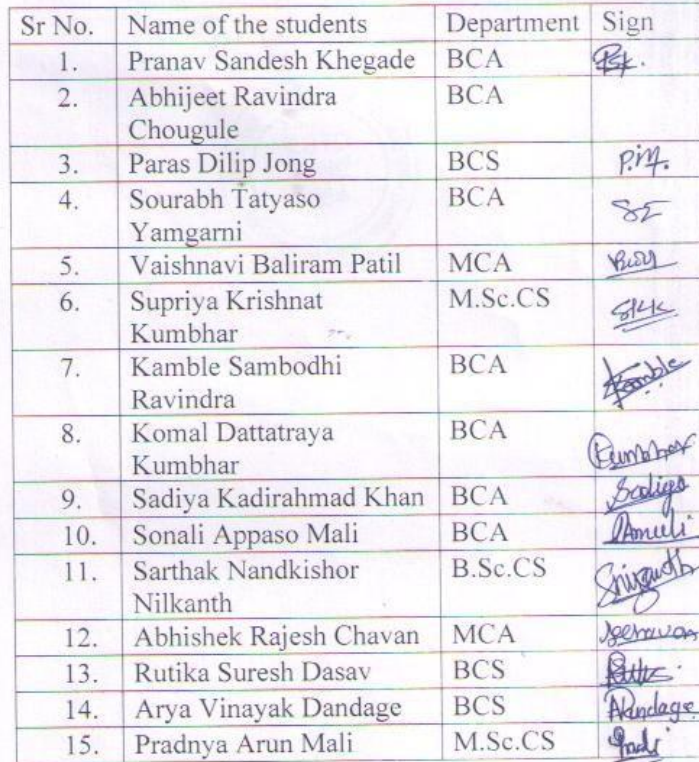 Sr No. Name of the students Department Sign
1. Pranav Sandesh Khegade BCA
2. Abhijeet Ravindra BCA
Chougule
3. Paras Dilip Jong BCS P.M.
4. Sourabh Tatyaso BCA
Yamgarni
5. Vaishnavi Baliram Patil MCA
6. Supriya Krishnat M.Sc.CS
Kumbhar
7. Kamble Sambodhi BCA Kamble
Ravindra
8. Komal Dattatraya BCA
Kumbhar Kumbhar
9. Sadiya Kadirahmad Khan BCA Sadiya
10. Sonali Appaso Mali BCA
11. Sarthak Nandkishor B.Sc.CS
Nilkanth
12. Abhishek Rajesh Chavan MCA
13. Rutika Suresh Dasav BCS
14. Arya Vinayak Dandage BCS Dandage
15. Pradnya Arun Mali M.Sc.CS